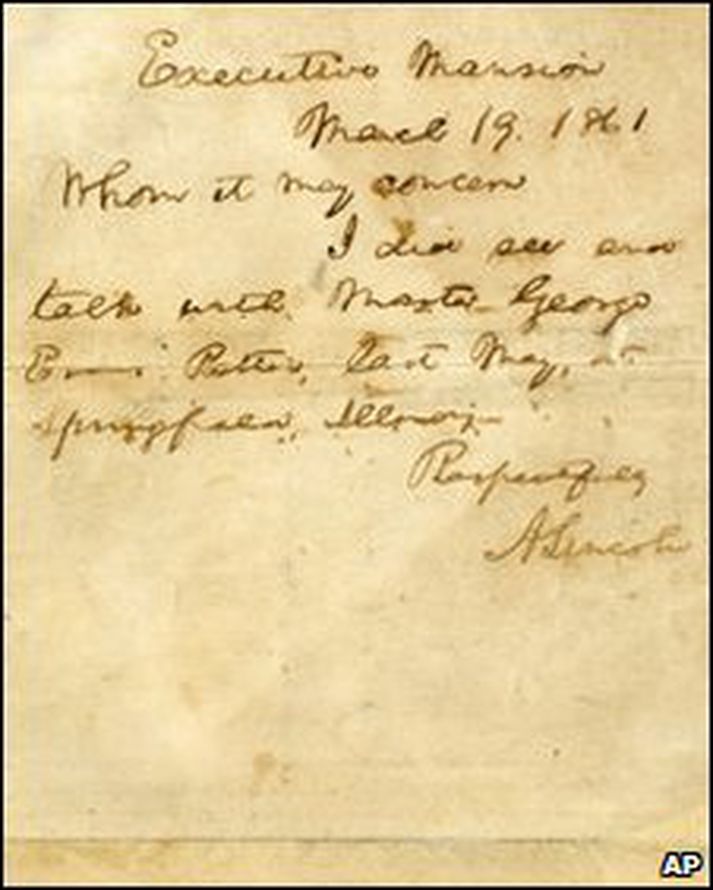 Executive Mansion
March 19. 1861
Whom it may concern
I did see and
talk with Master George
Patten, last May, at
Springfield, Illinois.
Respectfully
A Lincoln
AP